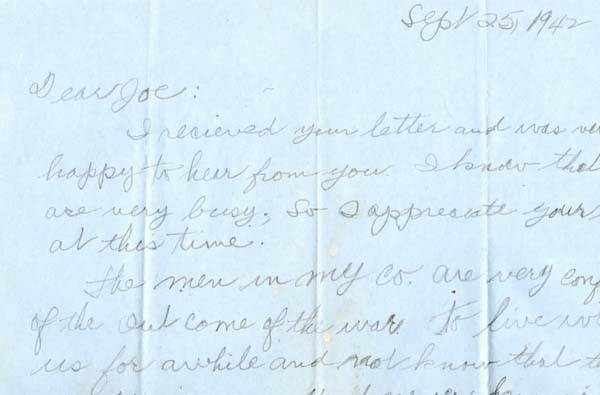 Sept 25, 1942
Dear Joe:
I recieved your letter and was ver
happy to hear from you. I know that
are very busy, so I appreciate your
at this time.
The men in my co. are very conf
of the out come of the war. To live w
us for awhile and not know that t